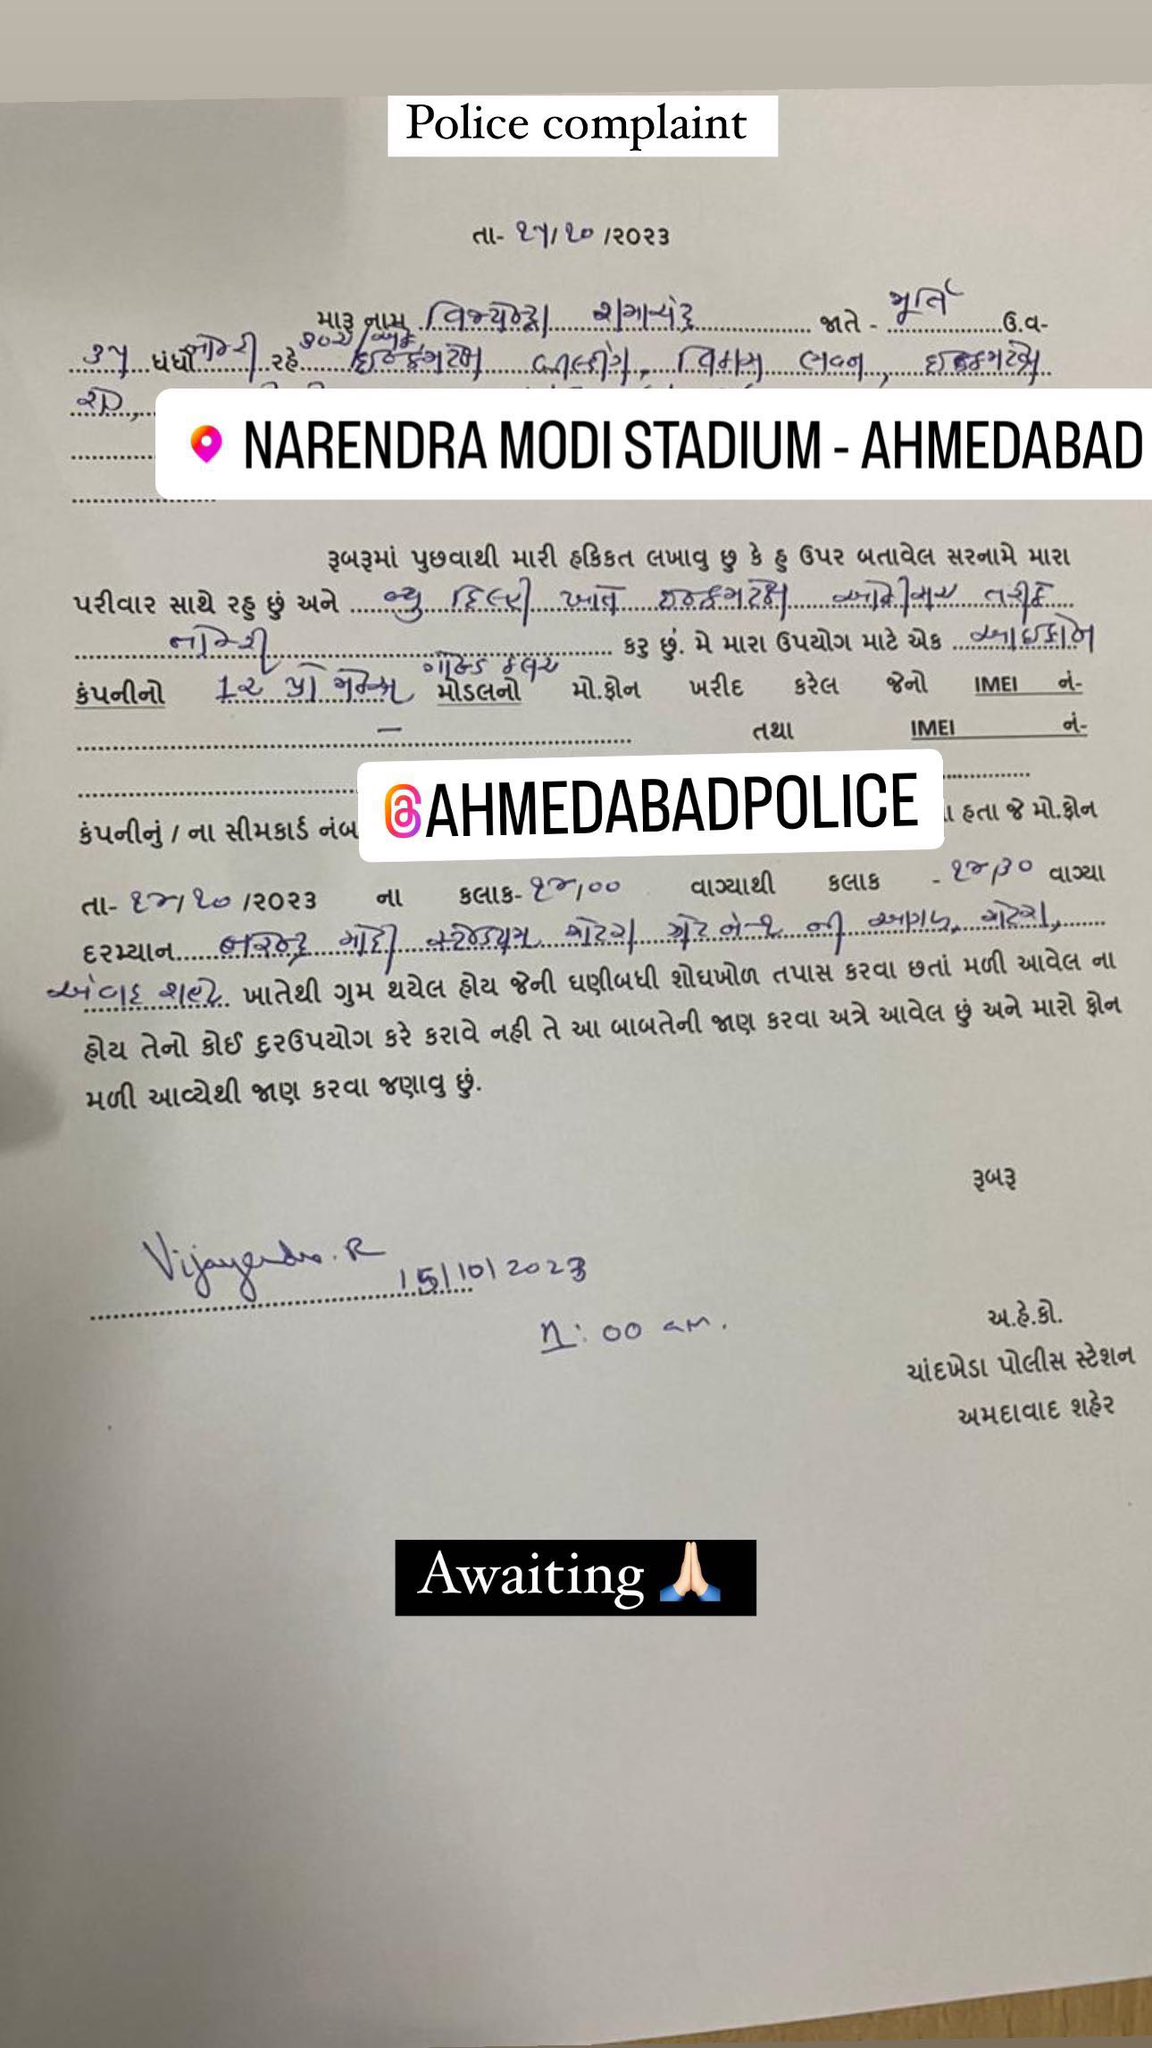 Police complaint
તા- ૧૫/૧૦/૨૦૨૩
મારૂ નામ વિજયેન્દ્રા રામાચંદ્ર જાતે - મૂર્તિ ઉ.વ-
૩૫ ધંધો નોકરી રહે ઈન્કમટેક્ષ બીલ્ડીંગ, ભવન, ઈન્કમટેક્ષ
રોડ,
NARENDRA MODI STADIUM - AHMEDABAD
રૂબરૂમાં પુછવાથી મારી હકિકત લખાવુ છુ કે હુ ઉપર બતાવેલ સરનામે મારા
પરીવાર સાથે રહુ છું અને ન્યુ દિલ્હી ખાતે ઈન્કમટેક્ષ ઓફીસર તરીકે
નોકરી કરુ છું. મે મારા ઉપયોગ માટે એક આઈફોન
કંપનીનો 12 પ્રો મેક્સ ગોલ્ડ કલર મોડલનો મો.ફોન ખરીદ કરેલ જેનો IMEI નં-
તથા IMEI નં-
@AHMEDABADPOLICE
કંપનીનું / ના સીમકાર્ડ નંબ હતા જે મો.ફોન
તા- ૧૪/૧૦/૨૦૨૩ ના કલાક- ૧૪/૦૦ વાગ્યાથી કલાક - ૧૪/૩૦ વાગ્યા
દરમ્યાન નરેન્દ્ર મોદી સ્ટેડીયમ મોટેરા ગેટ નં-૧ ની આગળ, મોટેરા,
અ'વાદ શહેર ખાતેથી ગુમ થયેલ હોય જેની ઘણીબધી શોધખોળ તપાસ કરવા છતાં મળી આવેલ ના
હોય તેનો કોઈ દુરઉપયોગ કરે કરાવે નહી તે આ બાબતેની જાણ કરવા અત્રે આવેલ છું અને મારો ફોન
મળી આવ્યેથી જાણ કરવા જણાવુ છું.
રૂબરૂ
Vijayendra.R
15/10/2023
:00 am.
અ.હે.કો.
ચાંદખેડા પોલીસ સ્ટેશન
અમદાવાદ શહેર
Awaiting 🙏🏻